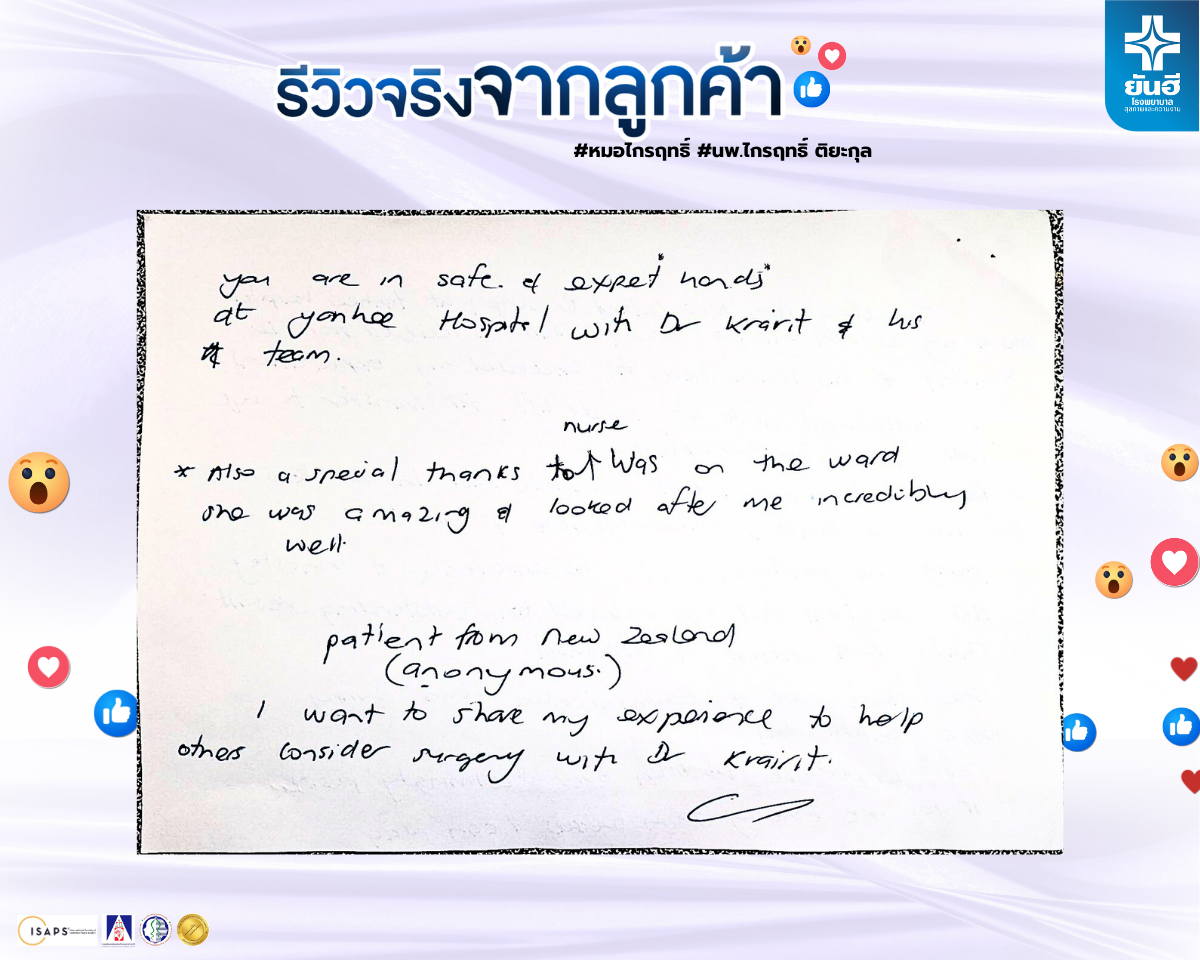 รีวิวจริงจากลูกค้า
#หมอไกรฤทธิ์ #นพ.ไกรฤทธิ์ ติยะกุล
ยันฮี
โรงพยาบาล
สุขภาพและความงาม
you are in safe & expet "hands"
at yanhee Hospital with Dr Krairit & his
team.
nurse
* Also a special thanks to ↑ Was on the ward
she was amazing & looked after me incredibly
well.
patient from new Zealand
(anonymous.)
I want to share my experience to help
others consider surgery with Dr Krairit.
ISAPS